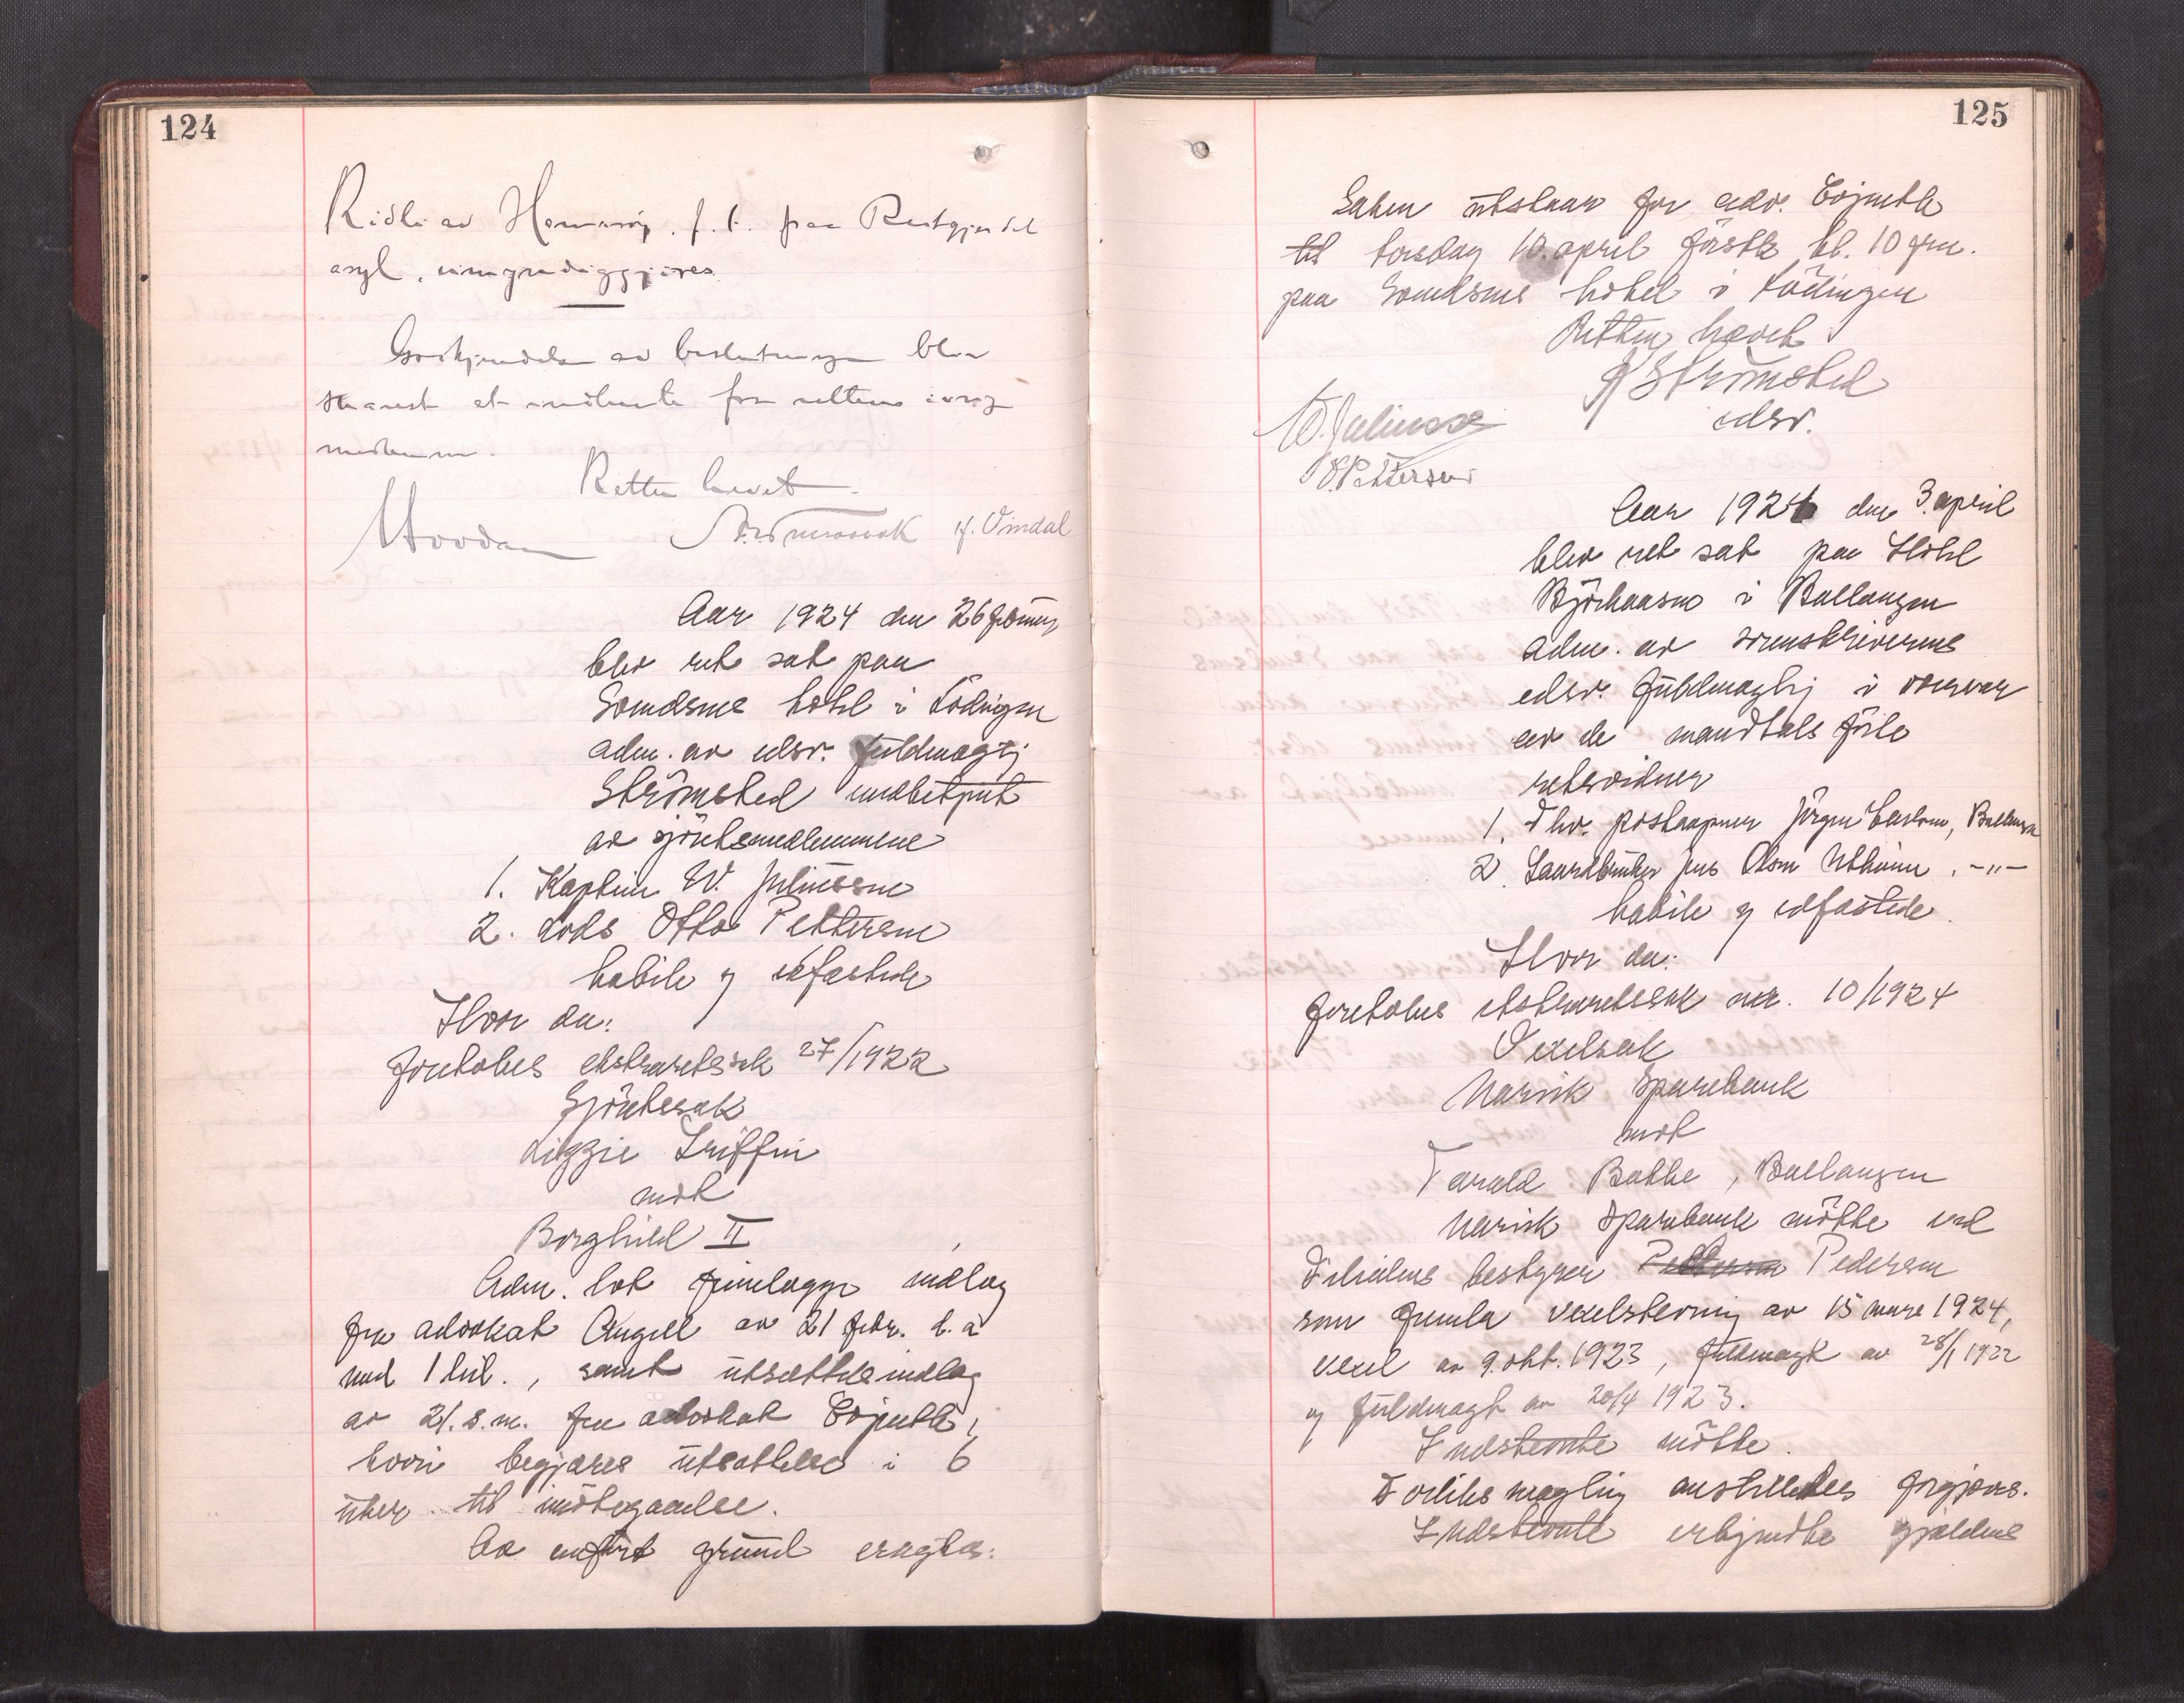 124
Ridli av Hamarøy, f. t. paa Røstgjerdet
asyl, umyndiggjøres.
Godkjendelse av beslutningen blev
at indhente fra rettens øvrige
medlemmer.
Retten hævet.
Hovdan
H. Vindal
Aar 1924 den 26 februar
blev ret sat paa
Svendsens hotel i Lødingen
adm. av edsv. fuldmægtig
Strømsted medbetjent
av sjøretsmedlemmene
1. Kaptein W. Juliussen
2. Lods Otto Pettersen
habile og edfæstede
Hvor da:
foretokes ekstraretssak 27/1922
Sjøretssak
Lizzie Griffin
mot
Borghild II
Adm. lot fremlægge indlæg
fra advokat Angell av 21 febr. d. å
med 1 bil., samt utsættelsesindlæg
av 21. s. m. fra advokat Evjenth,
hvori begjæres utsættelse i 6
uker til imøtegaaelse.
Av anført grund eragtes:
125
Saken utstaar for adv. Evjenth
til torsdag 10. april førstk. kl. 10 fm.
paa Svendsens hotel i Lødingen
Retten hævet
Strømsted
edsv.
W. Juliussen
O. Pettersen
Aar 1924 den 3. april
blev ret sat paa Hotel
Björkaasen i Ballangen
adm. av sorenskriverens
edsv. fuldmægtig i nærvær
av de mandtals førte
retsvidner
1. Fhv. postaapner Jørgen Carlsen, Ballangen
2. Gaardbruker Jens Olsen Utheim, -"-
habile og edfæstede.
Hvor da:
foretokes ekstraretssak nr. 10/1924
Vexelsak
Narvik Sparebank
mot
Tarald Bakke, Ballangen
Narvik Sparebank møtte ved
Filialens bestyrer Pettersen Pedersen
som fremla vexelstevning av 15 mars 1924,
vexel av 9. okt. 1923, fuldmagt av 28/1 1922
og fuldmagt av 20/4 1923.
Indstevnte møtte.
Forliksmægling anstilledes forgjæves.
Indstevnte erkjendte gjældens